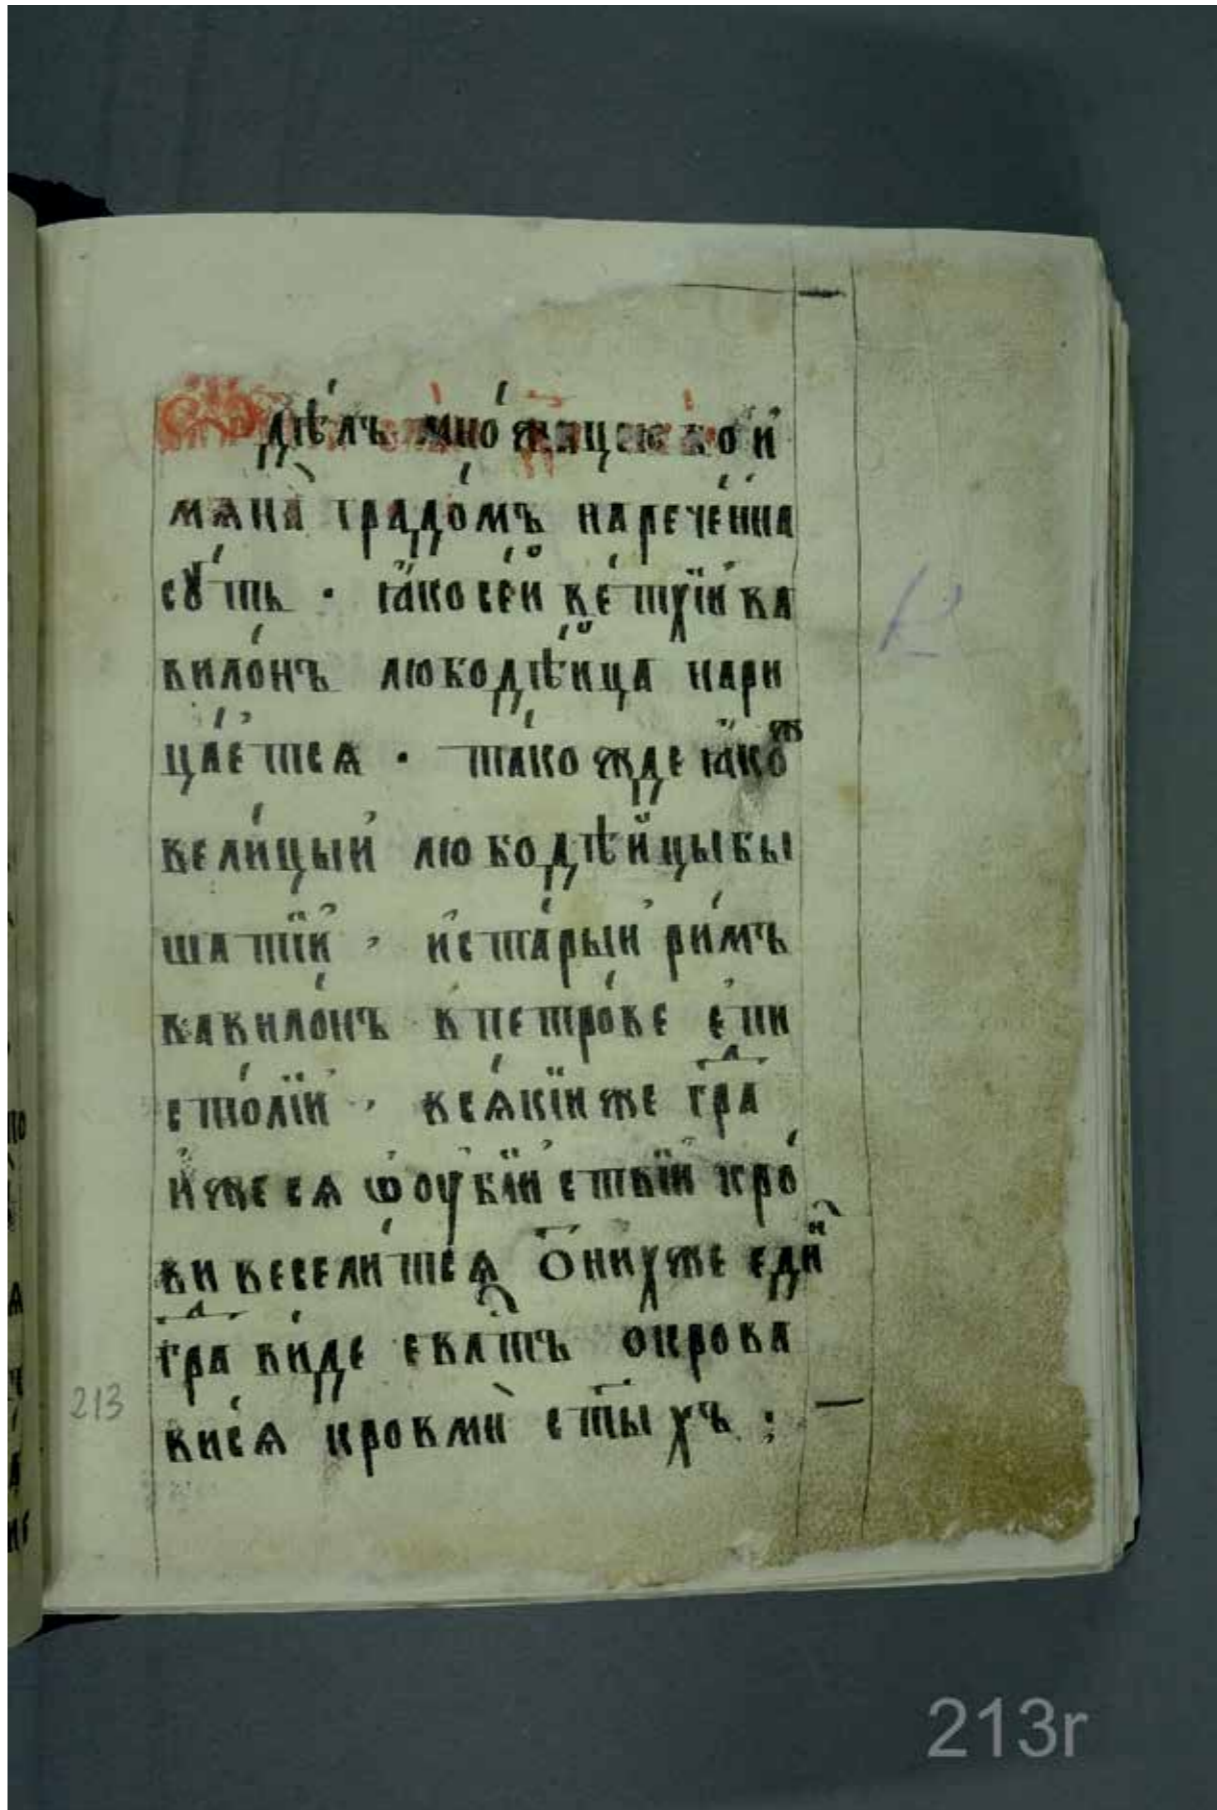 дѣлъ мно́жицею и
мѧна̀ градо́мъ нарече́нна
сꙋ́ть · ꙗ҆́ко се́й ве́тхїи ва
вило́нъ любодѣ́йца нари
ца́етсѧ · та́кожде ꙗ҆́коⷤ
вели́цыи любодѣ́йцы бы
ша тїи , и҆ ста́рыи ри́мъ
вавило́нъ в петро́ве е҆пи
сто́лїи , всѧ́кїи же граⷣ
и҆́же сѧ ѡ҆ оу҆бі́йствїи кро́
ви весели́тсѧ ѻ҆ ни́хже едиⷩ҇
граⷣ ви́де еѵⷢ҇лтъ ѡкрова
ви́сѧ кровми̇̀ ст҃ы́хъ ;
213
213r